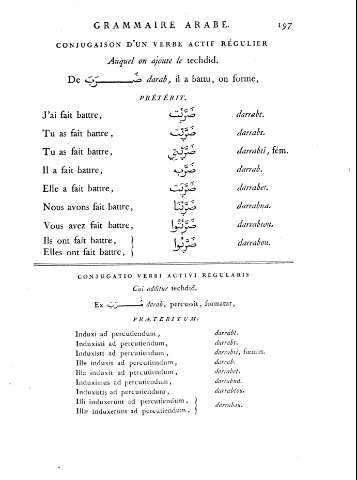 GRAMMAIRE ARABE. 197
CONJUGAISON D'UN VERBE ACTIF RÉGULIER
Auquel on ajoute le techdid.
De ضَــــرَبْ darab, il a battu, on forme,
PRÉTÉRIT.
J'ai fait battre, ضَرَّبْت darrabt.
Tu as fait battre, ضَرَّبْت darrabt.
Tu as fait battre, ضَرَّبْتِي darrabti, fém.
Il a fait battre, ضَرَّب darrab.
Elle a fait battre, ضَرَّبَت darrabet.
Nous avons fait battre, ضَرَّبْنَا darrabna.
Vous avez fait battre, ضَرَّبْتُوا darrabtou.
Ils ont fait battre, } ضَرَّبُوا darrabou.
Elles ont fait battre, }
CONJUGATIO VERBI ACTIVI REGULARIS
Cui additur techdid.
Ex ضَــــرَبْ darab, percussit, formatur,
PRÆTERITUM.
Induxi ad percutiendum, darrabt.
Induxisti ad percutiendum, darrabt.
Induxisti ad percutiendum, darrabti, fœmin.
Ille induxit ad percutiendum, darrab.
Illa induxit ad percutiendum, darrabet.
Induximus ad percutiendum, darrabna.
Induxistis ad percutiendum, darrabtou.
Illi induxerunt ad percutiendum, } darrabou.
Illæ induxerunt ad percutiendum, }